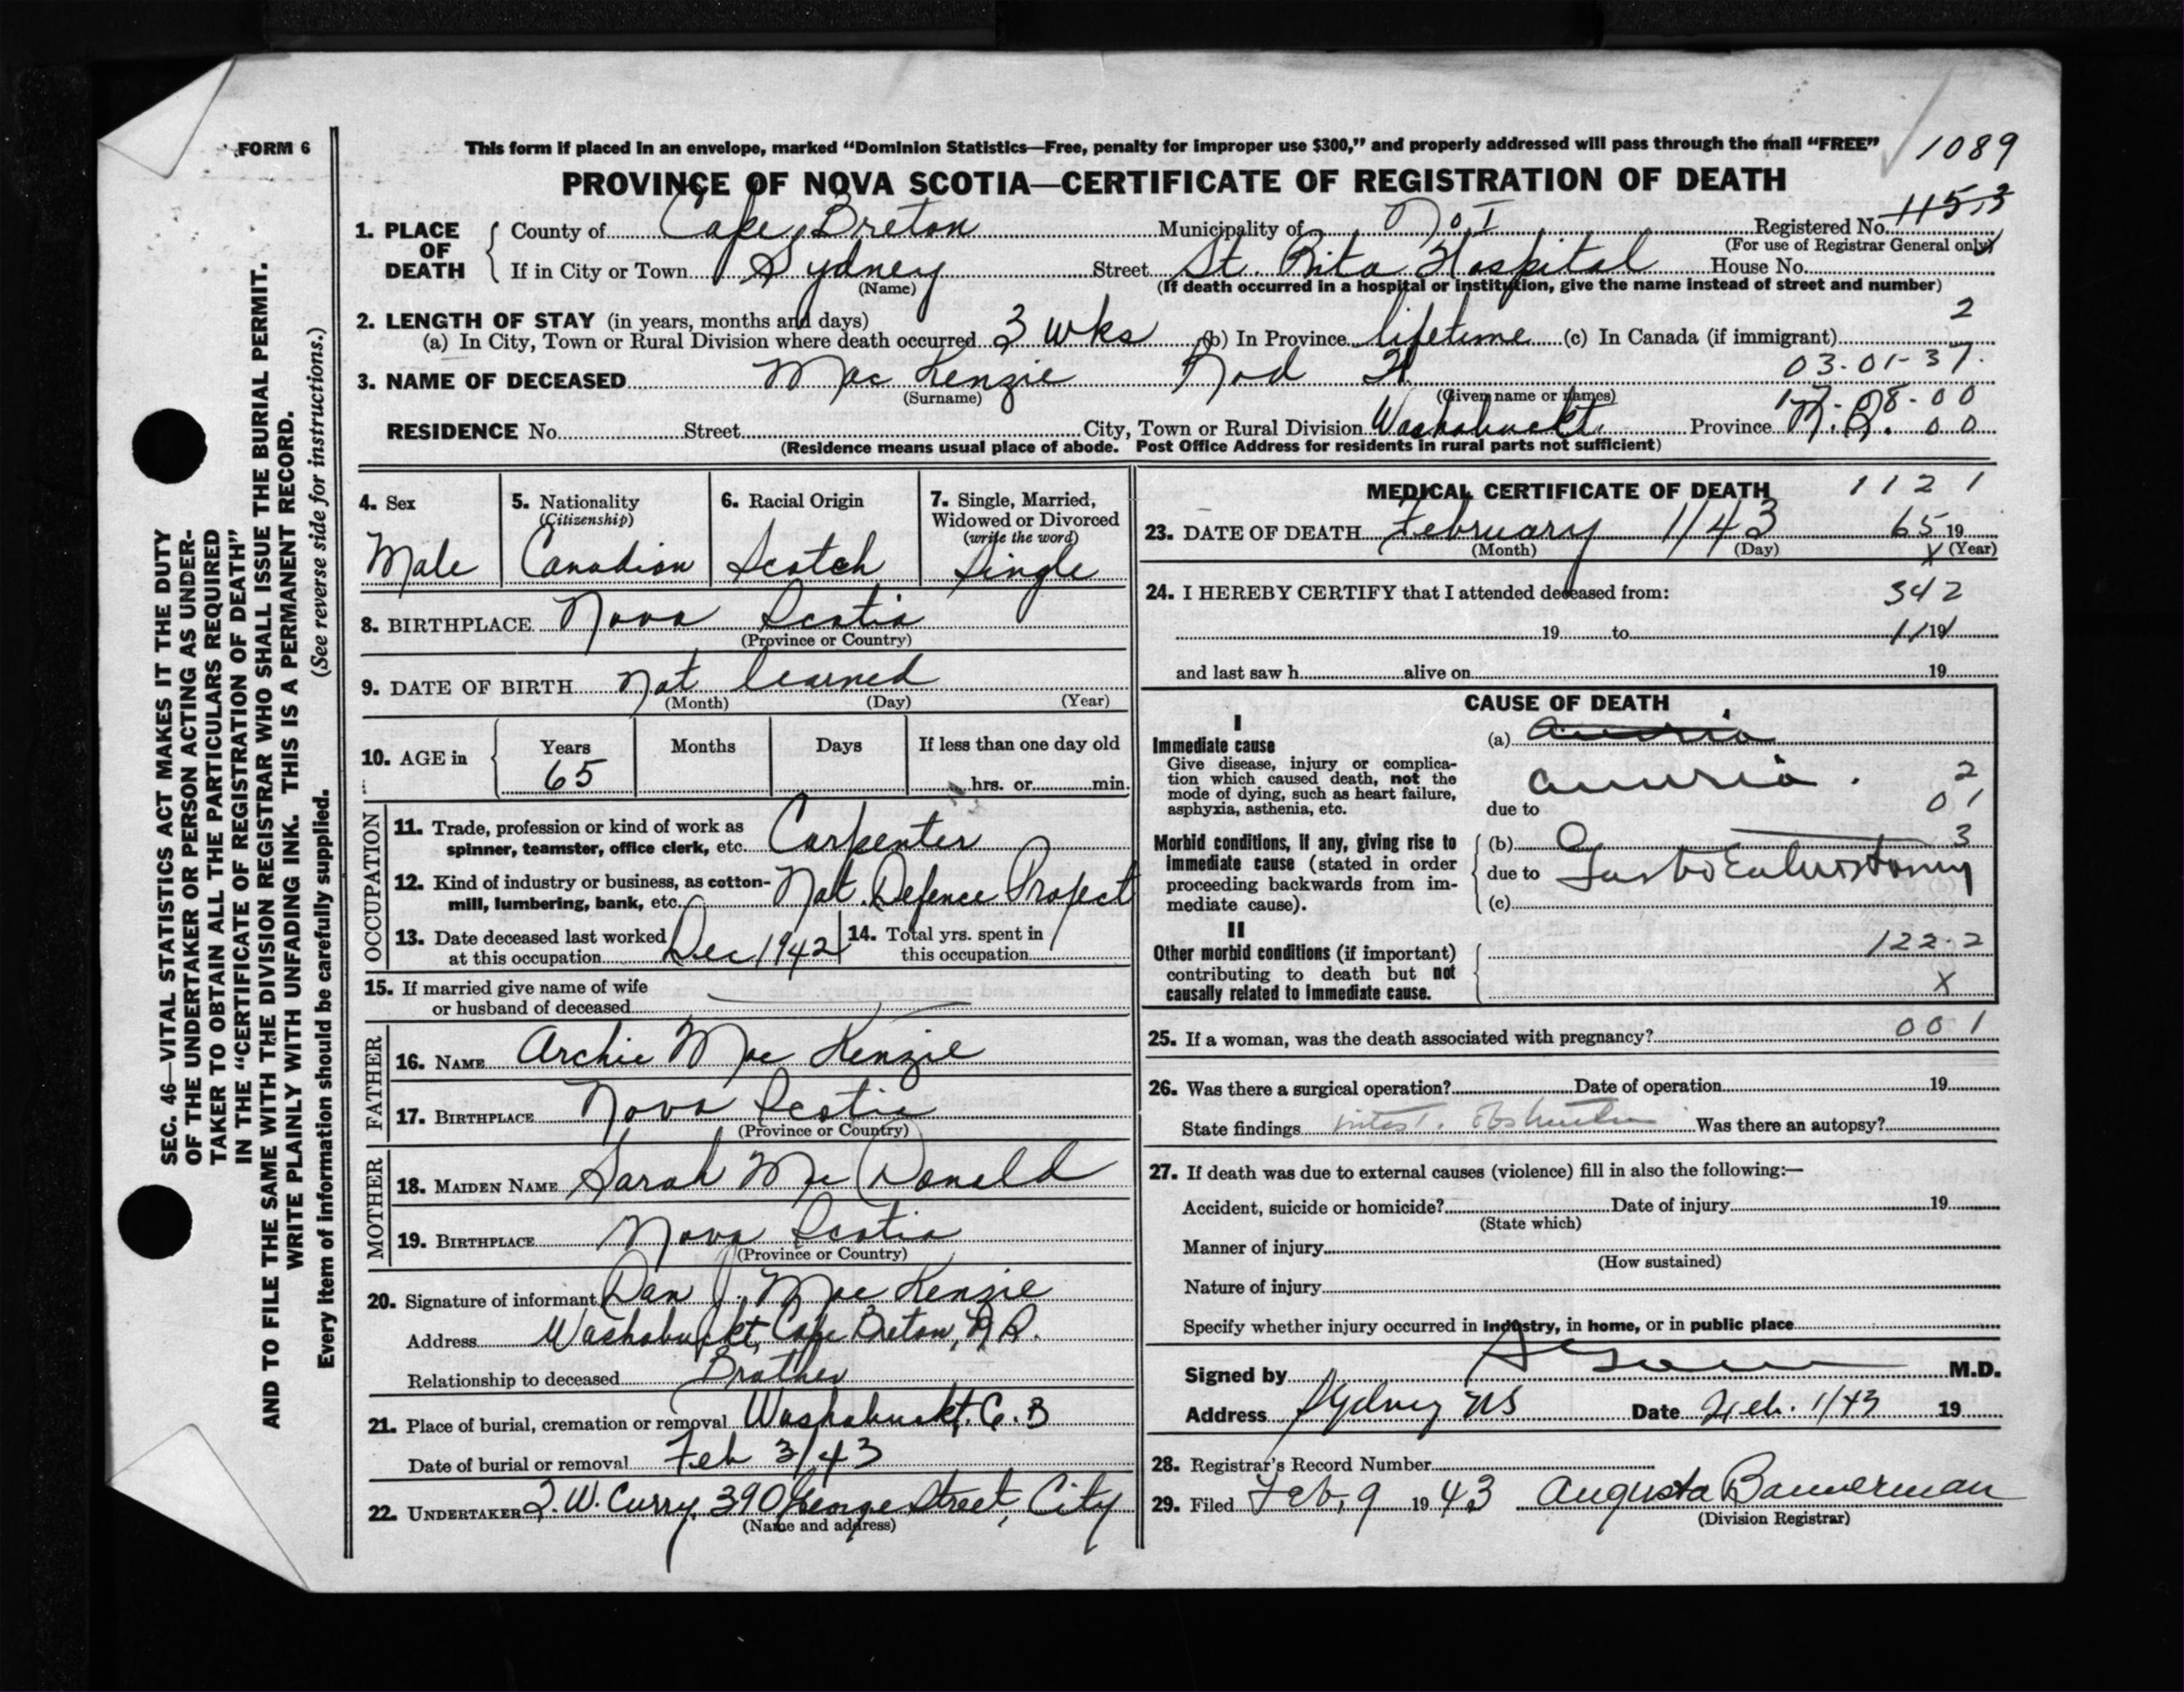 FORM 6
This form if placed in an envelope, marked “Dominion Statistics—Free, penalty for improper use $300,” and properly addressed will pass through the mail “FREE”
1089
PROVINCE OF NOVA SCOTIA—CERTIFICATE OF REGISTRATION OF DEATH
1. PLACE OF DEATH
County of Cape Breton Municipality of No I Registered No. 1153
(For use of Registrar General only)
If in City or Town Sydney Street St. Rita Hospital House No.
(Name) (If death occurred in a hospital or institution, give the name instead of street and number)
2. LENGTH OF STAY (in years, months and days) 2
(a) In City, Town or Rural Division where death occurred 3 wks (b) In Province lifetime (c) In Canada (if immigrant)
03-01-37.
3. NAME OF DECEASED Mac Kenzie Rod
(Surname) (Given name or names)
RESIDENCE No. Street City, Town or Rural Division Washabuckt. Province 00
(Residence means usual place of abode. Post Office Address for residents in rural parts not sufficient)
4. Sex
Male
5. Nationality
(Citizenship)
Canadian
6. Racial Origin
Scotch
7. Single, Married,
Widowed or Divorced
(write the word)
Single
8. BIRTHPLACE Nova Scotia
(Province or Country)
9. DATE OF BIRTH Not learned
(Month) (Day) (Year)
10. AGE in Years Months Days If less than one day old
65 hrs. or min.
OCCUPATION
11. Trade, profession or kind of work as
spinner, teamster, office clerk, etc. Carpenter
12. Kind of industry or business, as cotton-
mill, lumbering, bank, etc. Nat. Defence Project
13. Date deceased last worked
at this occupation Dec 1942
14. Total yrs. spent in
this occupation
15. If married give name of wife
or husband of deceased
FATHER
16. NAME Archie Mac Kenzie
17. BIRTHPLACE Nova Scotia
(Province or Country)
MOTHER
18. MAIDEN NAME Sarah Mc Donald
19. BIRTHPLACE Nova Scotia
(Province or Country)
20. Signature of informant Dan J. Mac Kenzie
Address Washabuckt, Cape Breton,
Relationship to deceased Brother
21. Place of burial, cremation or removal Washabuckt. C. B
Date of burial or removal Feb 3/43
22. UNDERTAKER W. Curry, 390 George Street, City
(Name and address)
MEDICAL CERTIFICATE OF DEATH 1121
23. DATE OF DEATH February 1/43 65 19
(Month) (Day) X (Year)
24. I HEREBY CERTIFY that I attended deceased from: 342
19 to 19
and last saw h alive on 19
CAUSE OF DEATH
I
Immediate cause (a) anuria
Give disease, injury or complica-
tion which caused death, not the
mode of dying, such as heart failure,
asphyxia, asthenia, etc.
anuria. 2
due to 01
Morbid conditions, if any, giving rise to
immediate cause (stated in order
proceeding backwards from im-
mediate cause).
(b) 3
due to Gastro Enterostomy
(c)
II
Other morbid conditions (if important)
contributing to death but not
causally related to immediate cause.
122.2
X
25. If a woman, was the death associated with pregnancy? 001
26. Was there a surgical operation? Date of operation 19
State findings intest. obstruction Was there an autopsy?
27. If death was due to external causes (violence) fill in also the following:—
Accident, suicide or homicide? Date of injury 19
(State which)
Manner of injury
(How sustained)
Nature of injury
Specify whether injury occurred in industry, in home, or in public place
Signed by M.D.
Address Sydney NS Date Feb. 1/43 19
28. Registrar's Record Number
29. Filed Feb, 9 1943 Augusta Bannerman
(Division Registrar)
SEC. 46—VITAL STATISTICS ACT MAKES IT THE DUTY
OF THE UNDERTAKER OR PERSON ACTING AS UNDER-
TAKER TO OBTAIN ALL THE PARTICULARS REQUIRED
IN THE “CERTIFICATE OF REGISTRATION OF DEATH”
AND TO FILE THE SAME WITH THE DIVISION REGISTRAR WHO SHALL ISSUE THE BURIAL PERMIT.
WRITE PLAINLY WITH UNFADING INK. THIS IS A PERMANENT RECORD.
Every item of information should be carefully supplied. (See reverse side for instructions.)